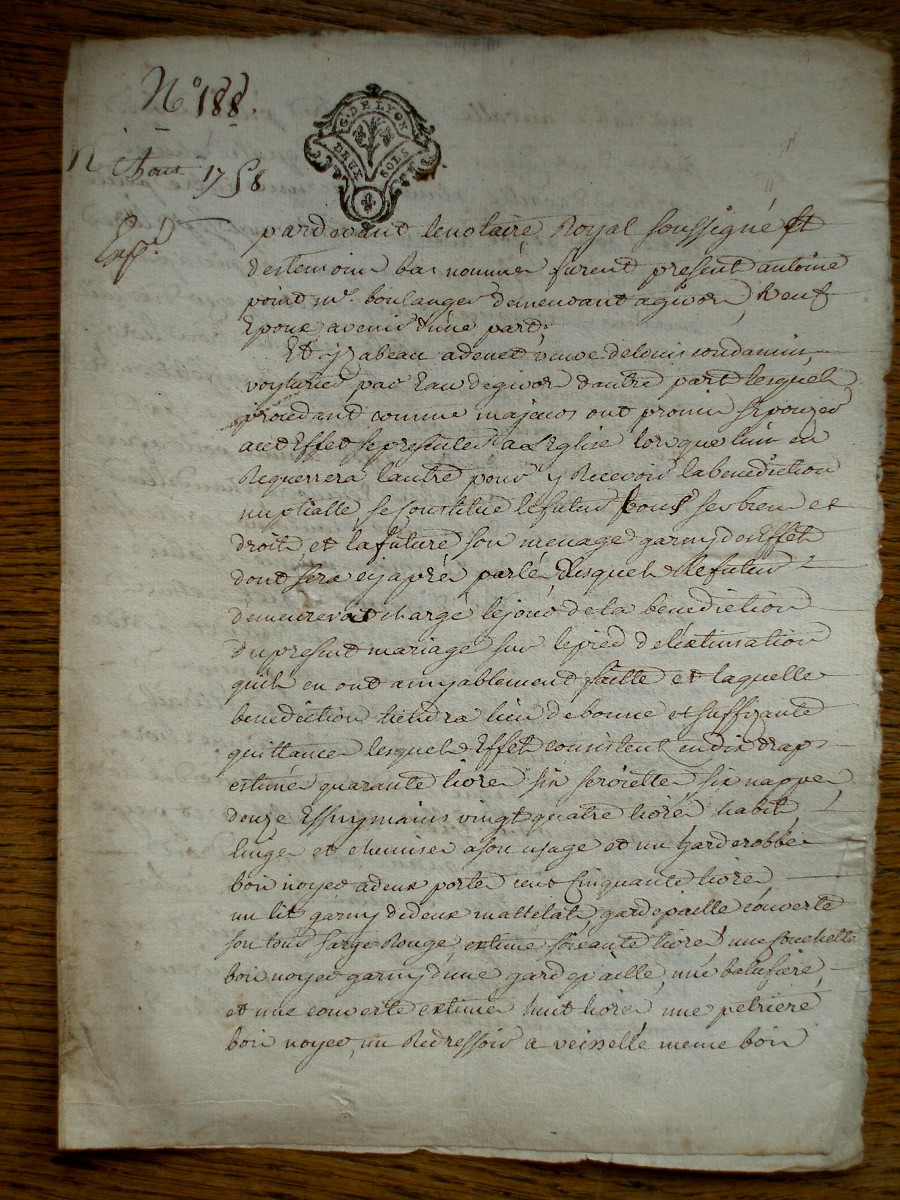 N° 188.
G. DE LYON
DEUX SOLS
Aout 1758
Exp.é
pardevant lenotaire Royal soussigné et
destemoins bas nommés furent present antoine
point m.e boulanger demeurant agivors, veuf
Epoux avenir d'une part,
Et yzabeau adenet veuve delouis coudamin,
voyturier par Eau degivors d'autre part lesquels
proceddant comme majeurs ont promis sepouzer
acet Effet sepresenter a L'Eglise lorsque lun en
Requerrera lautre pour y Recevoir labenediction
nuptialle se constitue lefutur tous ses biens et
droits et lafuture son menage garny des Effets
dont sera cy aprés parlé, desquels le futur
demeurera chargé lejour dela benediction
du present mariage sur lepied de lestimation
quils en ont amyablement faitte et laquelle
benediction tiendra lieu debonne et suffizante
quittance lesquels Effets consistent en dix draps
estimés quarante livres six serviettes, six nappes,
douze Essuymains vingt quatre livres habits
linges et chemises a son usage et un garderobbe
bois noyer a deux portes cent cinquante livres
un lit garny de deux mattelats, gardepaille couverte
son tour sarge Rouge, estimé soixante livres, une couchette
bois noyer garny d'une gardepaille, une balufiere,
et une couverte estimés huit livres, une petriere
bois noyer, un Redressoir a veisselle meme bois